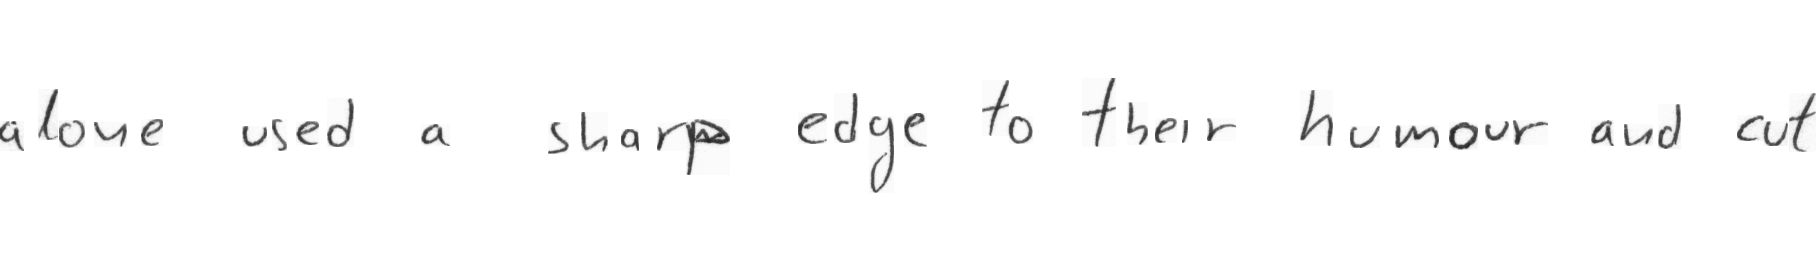 alone used a sharp edge to their humour and cut